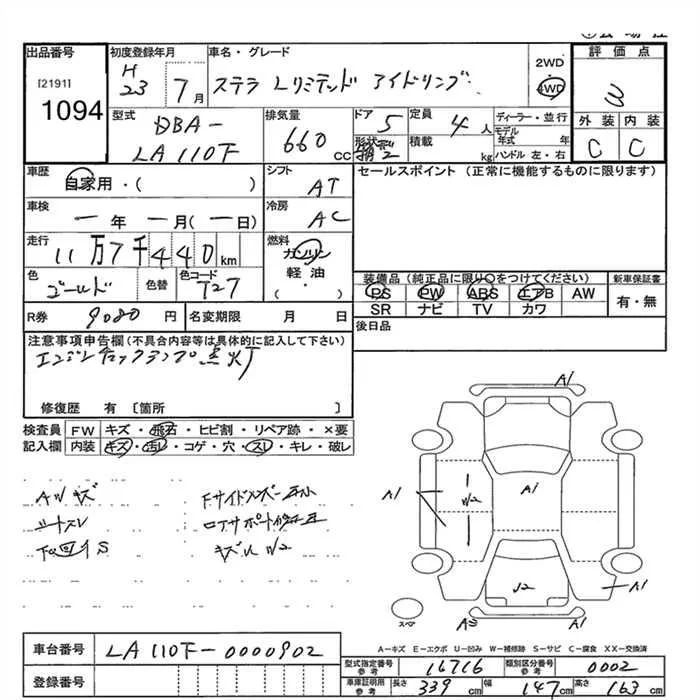 出品番号
[2191]
1094
初度登録年月
H
23 7月
車名・グレード
ステラ Lリミテッド アイドリング
2WD
4WD
評価点
3
型式
DBA-
LA110F
排気量
660 CC
ドア 5
形状
定員 4人
積載 kg
ディーラー・並行
モデル年式 年
ハンドル 左・右
外装 内装
C C
車歴
自家用・( )
シフト
AT
セールスポイント (正常に機能するものに限ります)
車検
一年 一月(一日)
冷房
AC
走行
11万7千440km
燃料
ガソリン
軽油
・( )
色
ゴールド
色替
色コード
T27
装備品 (純正品に限り○をつけてください)
PS PW ABS エアB AW
SR ナビ TV カワ
新車保証書
有・無
R券 9080円
名変期限 月 日
後日品
注意事項申告欄(不具合内容等は具体的に記入して下さい)
エンジンチェックランプ点灯
修復歴 有 [箇所 ]
検査員 FW キズ・飛石・ヒビ割・リペア跡・×要
記入欄 内装 キズ・汚レ・コゲ・穴・スレ・キレ・破レ
Aソリキズ
シートスレ
下回りS
キズ凹 U2
A1
A1
A1
U2
J2
A1
A5
A1
スペア
A-キズ E-エクボ U-凹み W-補修跡 S-サビ C-腐食 XX-交換済
車台番号 LA110F-0000902
登録番号
型式指定番号 参考 16716
類別区分番号 参考 0002
車庫証明用 参考 長さ 339cm 幅 147cm 高さ 163cm